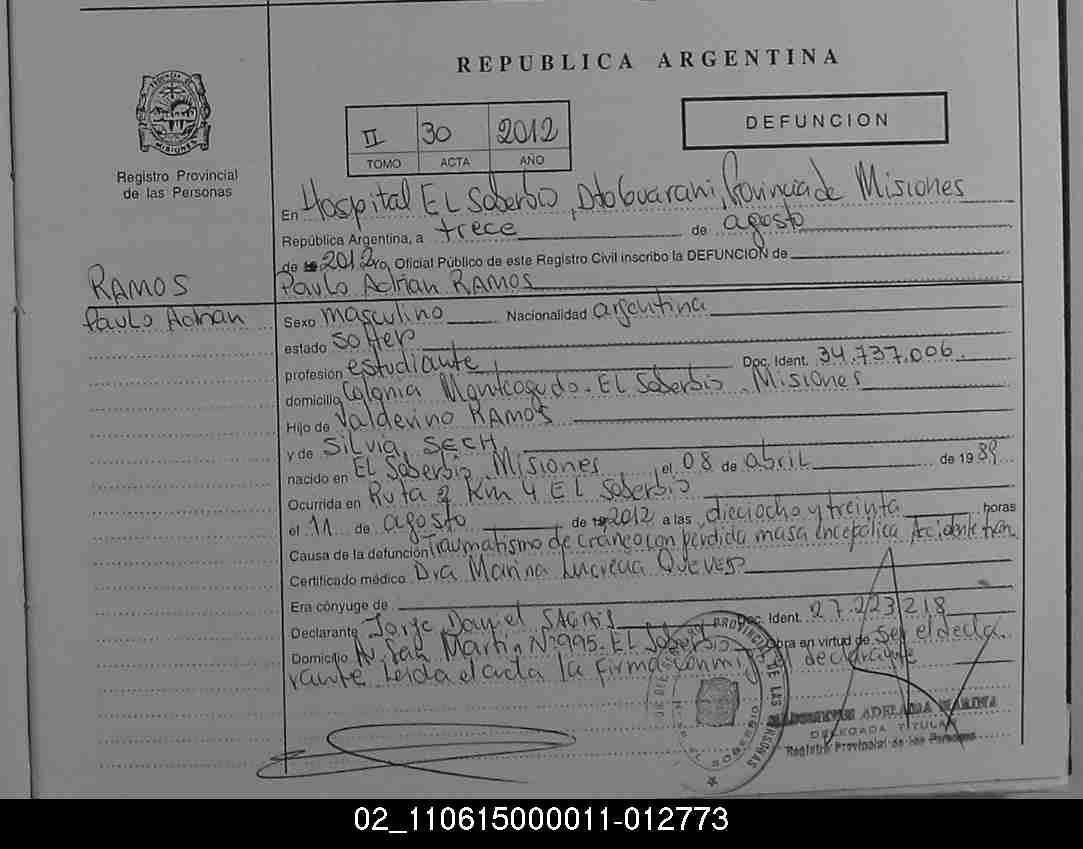 REPUBLICA ARGENTINA
II 30 2012
TOMO ACTA AÑO
DEFUNCION
MISIONES
Registro Provincial
de las Personas
En Hospital EL Soberbio, Dto Guarani, Provincia de Misiones
República Argentina, a trece de agosto
de 2012 yo, Oficial Público de este Registro Civil inscribo la DEFUNCION de
RAMOS
Paulo Adrian RAMOS
Paulo Adrian
Sexo masculino Nacionalidad argentina
estado solter
profesión estudiante Doc. Ident. 34.737.006
domicilio Colonia Monteagudo. EL Soberbio, Misiones
Hijo de Valdevino RAMOS
y de Silvia SECH
nacido en EL Soberbio, Misiones, el 08 de abril de 1989
Ocurrida en Ruta 2 Km 4 EL Soberbio
el 11 de agosto de 2012 a las dieciocho y treinta horas
Causa de la defunción Traumatismo de craneo con perdida masa encefalica, Accidente
Certificado médico Dra Marina
Era cónyuge de
Declarante Jorge Daniel Doc. Ident. 27.223.218
Domicilio Av. San Martin Nº 995. EL Soberbio Obra en virtud de ser el decla
rante Leida el acta la firma conmigo el declarante
DELEGADA TITULAR
Registro Provincial de las Personas
02_110615000011-012773